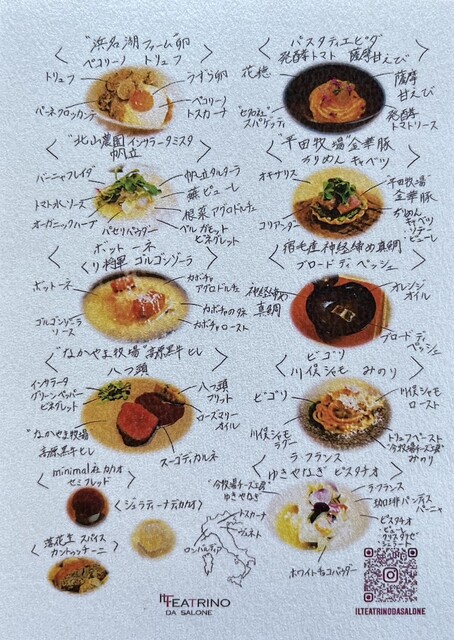 "浜名湖ファーム"卵
ペコリーノ トリュフ
トリュフ
うずら卵
ペコリーノ
トスカーナ
パーネクロッカンテ
"北山農園"インサラータミスタ
帆立
バーニャフレイダ
帆立タルターラ
蕪ピューレ
トマト水ソース
根菜アグロドルチェ
オーガニックハーブ
パセリパウダー
ベルガモット
ビネグレット
ボットーネ
くり将軍 ゴルゴンゾーラ
ボットーネ
カボチャ
アグロドルチェ
カボチャの種
ゴルゴンゾーラ
ソース
カボチャロースト
"なかやま牧場"高原黒牛ヒレ
八つ頭
インサラータ
グリーンペッパー
ビネグレット
八つ頭
フリット
ローズマリー
オイル
"なかやま牧場"
高原黒牛ヒレ
スーゴディカルネ
minimal社カカオ
セミフレッド
ジェラティーナデカカオ
落花生 スパイス
カントゥッチーニ
パスタディエビダ
発酵トマト 薩摩甘えび
花穂
薩摩
甘えび
スパゲッティ
発酵
トマトソース
"平田牧場"金華豚
かりめん キャベツ
オキサリス
"平田牧場"
金華豚
コリアンダー
かりめん
キャベツ
・ソテー
・ピューレ
宿毛産神経締め真鯛
ブロード ディ ペッシェ
神経締め
真鯛
オレンジ
オイル
ブロード ディ
ペッシェ
ビゴリ
川俣シャモ みのり
ビゴリ
川俣シャモ
ロースト
川俣シャモ
ラグー
トリュフペースト
"今牧場チーズ工房"
みのり
ラ・フランス
ゆきやなぎ ピスタチオ
"今牧場チーズ工房"
ゆきやなぎ
ラ・フランス
珈琲パンディス
パーニャ
ピスタチオ
・ピューレ
・クリスタリゼ
・ジェラート
ホワイトチョコパウダー
トスカーナ
ヴェネト
ロンバルディア
IL TEATRINO
DA SALONE
ILTEATRINODASALONE